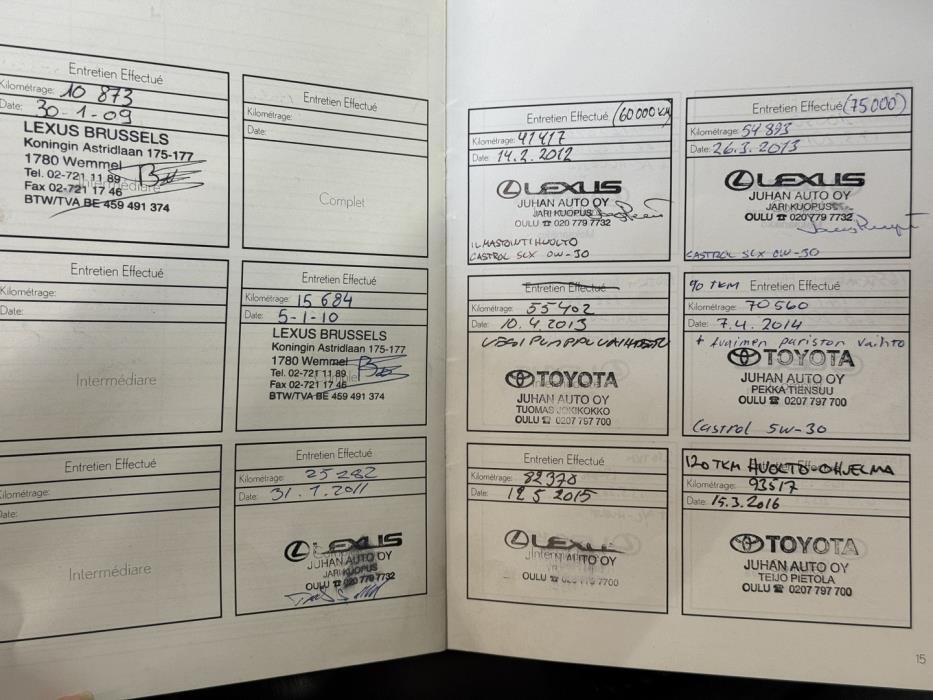 Entretien Effectué
Kilométrage: 10 873
Date: 30-1-09
LEXUS BRUSSELS
Koningin Astridlaan 175-177
1780 Wemmel
Tel. 02-721 11 89
Fax 02-721 17 46
BTW/TVA BE 459 491 374
Intermédiaire
Entretien Effectué
Kilométrage:
Date:
Complet
Entretien Effectué
Kilométrage:
Date:
Intermédiare
Entretien Effectué
Kilométrage: 15 684
Date: 5-1-10
LEXUS BRUSSELS
Koningin Astridlaan 175-177
1780 Wemmel
Tel. 02-721 11 89
Fax 02-721 17 46
BTW/TVA BE 459 491 374
Entretien Effectué
Kilométrage:
Date:
Intermédiare
Entretien Effectué
Kilométrage: 25 282
Date: 31.1.2011
LEXUS
JUHAN AUTO OY
JARI KUOPUS
OULU ☎ 020 779 7732
Entretien Effectué (60 000 KM)
Kilométrage: 41417
Date: 14.2.2012
LEXUS
JUHAN AUTO OY
JARI KUOPUS
OULU ☎ 020 779 7732
ILMASTOINTIHUOLTO
CASTROL SLX 0W-30
Entretien Effectué (75000)
Kilométrage: 54893
Date: 26.3.2013
LEXUS
JUHAN AUTO OY
JARI KUOPUS
OULU ☎ 020 779 7732
CASTROL SLX 0W-30
Entretien Effectué
Kilométrage: 55402
Date: 10.4.2013
VESIPUMPPU VAIHDETTU
TOYOTA
JUHAN AUTO OY
TUOMAS JOKIKOKKO
OULU ☎ 0207 797 700
90 TKM Entretien Effectué
Kilométrage: 70560
Date: 7.4.2014
+ Avaimen pariston vaihto
TOYOTA
JUHAN AUTO OY
PEKKA TIENSUU
OULU ☎ 0207 797 700
Castrol 5W-30
Entretien Effectué
Kilométrage: 82370
Date: 12 5 2015
LEXUS
JUHAN AUTO OY
OULU ☎ 020 779 7700
120 TKM HUOLTO-OHJELMA
Kilométrage: 93517
Date: 15.3.2016
TOYOTA
JUHAN AUTO OY
TEIJO PIETOLA
OULU ☎ 0207 797 700
15